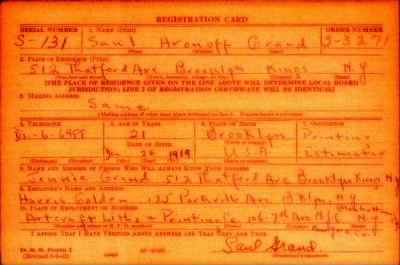 REGISTRATION CARD
SERIAL NUMBER 1. NAME (Print) ORDER NUMBER
S-131 Saul Aronoff Grand S-3371
(First) (Middle) (Last)
2. PLACE OF RESIDENCE (Print)
512 Thatford Ave Brooklyn Kings N.Y.
[THE PLACE OF RESIDENCE GIVEN ON THE LINE ABOVE WILL DETERMINE LOCAL BOARD
JURISDICTION; LINE 2 OF REGISTRATION CERTIFICATE WILL BE IDENTICAL]
3. MAILING ADDRESS
Same
4. TELEPHONE 5. AGE IN YEARS 6. PLACE OF BIRTH 7. OCCUPATION
Di-6-6988 21 Brooklyn Printing
DATE OF BIRTH
Dec. 28 1919 U.S.A. Estimator
(Exchange) (Number) (Mo.) (Day) (Yr.)
8. NAME AND ADDRESS OF PERSON WHO WILL ALWAYS KNOW YOUR ADDRESS
Jennie Grand 512 Thatford Ave Brooklyn Kings N.Y.
9. EMPLOYER'S NAME AND ADDRESS
Harris Golden 135 Parkville Ave Bklyn, N.Y.
10. PLACE OF EMPLOYMENT OR BUSINESS
Artcraft Litho & Printing Co. 106-7th Ave N.Y.C. N.Y.
I AFFIRM THAT I HAVE VERIFIED ABOVE ANSWERS AND THAT THEY ARE TRUE.
D. S. S. FORM 1
Saul Grand